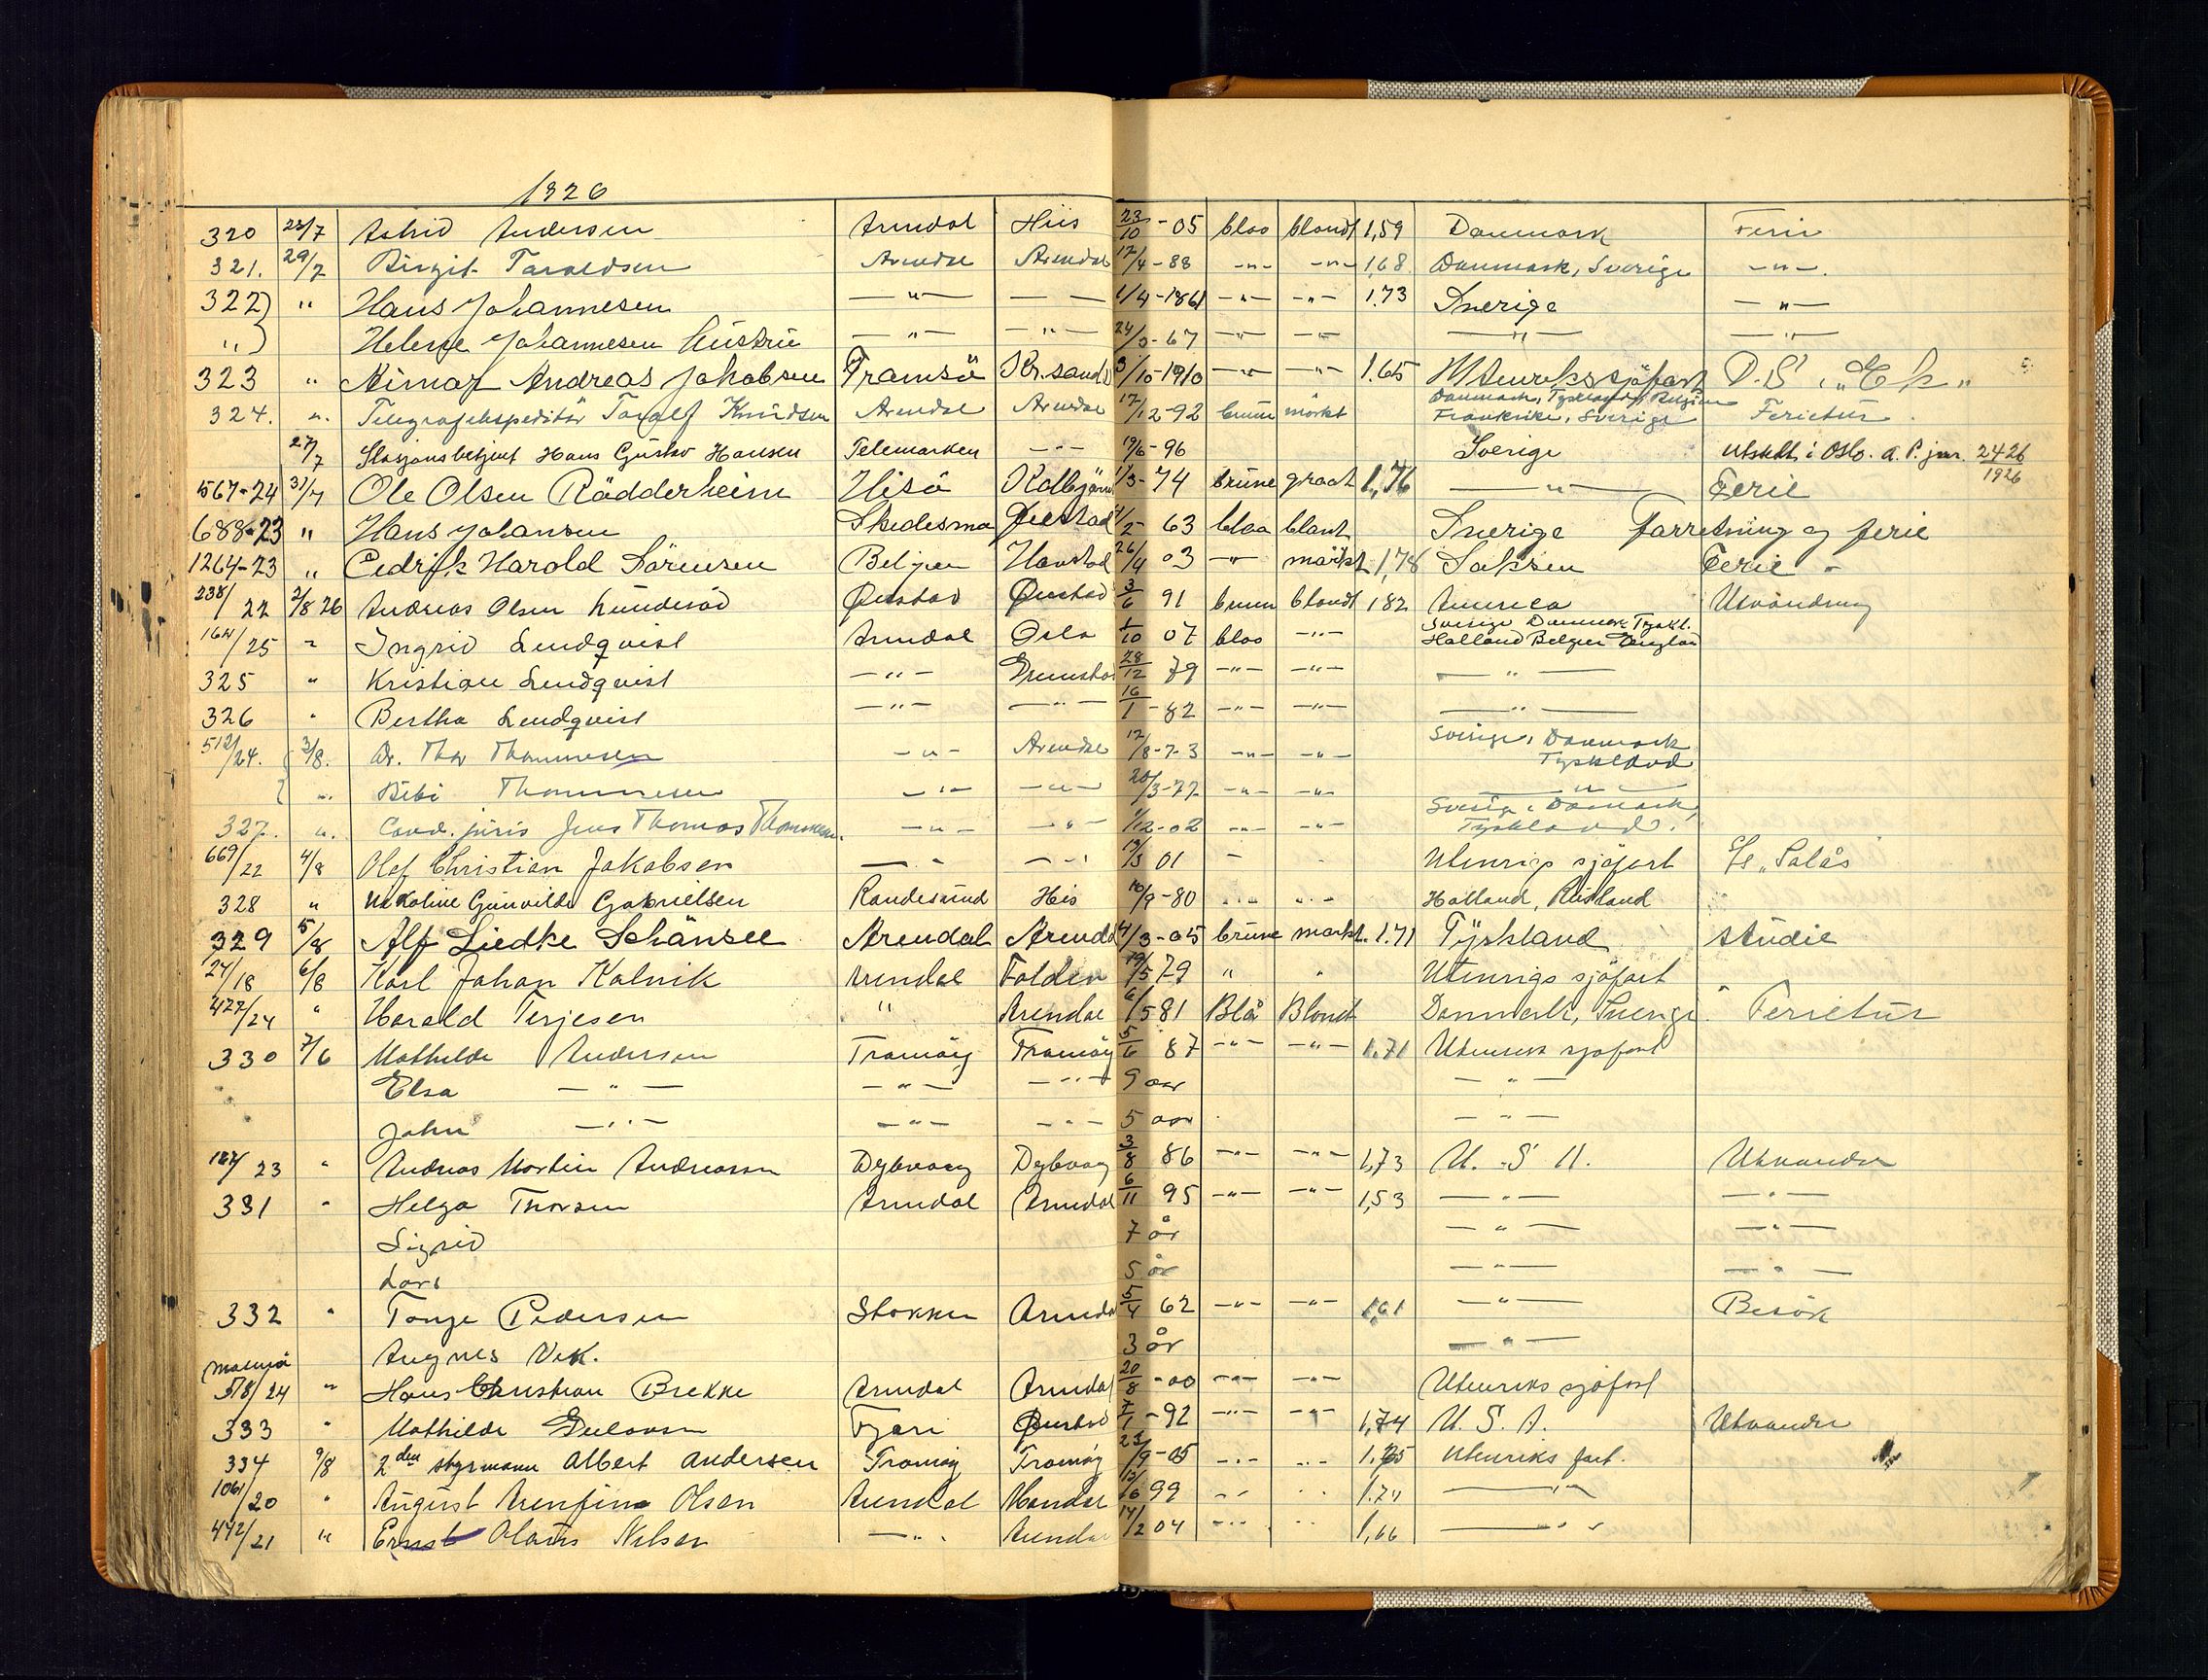 1926
320 28/7 Astrid Andersen Arendal Hiis 23/10 - 05 blaa blondt 1,59 Danmark Ferie
321. 29/7 Birgit Taraldsen Arendal Arendal 17/4 - 88 -"- -"- 1,68 Danmark, Sverige -"-.
322) " Hans Johannesen -"- - - 1/4 - 1861 -"- -"- 1.73 Sverige -"-
" ) Helene Johannesen Hustru -"- -"- 24/3 - 67 -"- -"- -"- -"-
323 " Andreas Jakobsen Tromsö Kr.sand 3/10 - 1910 -"- -"- 1.65 Utenrikssjöfart D.S. "Ek"
324. ". Telegrafekspeditör Taralf Knudsen Arendal Arendal 17/12 - 92 brune mörkt Danmark, Tyskland, Belgien
Frankrike, Sverige Ferietur
27/7 Stasjonsbetjent Hans Gustav Hansen Telemarken -"- 19/6 - 96 Sverige Utstedt i Oslo. a. P. jnr. 2426/1926
567-24 31/7 Ole Olsen Rädderheim Hisö 1/3 - 74 brune graat 1,76 -"- Ferie
688-23 " Hans Johansen Skedesmo Øiestad 63 blaa blant Sverige Farretning og ferie
1264-23 " Cedrik Harold Sörensen Belgien 26/4 03 -"- mörkt 1,78 Saksen Ferie -
238/22 2/8 26 Andreas Olsen Lunderöd Øiestad Øiestad 3/6 91 brun blondt 182 America Utvandring
164/25 " Ingrid Lundqvist Arendal Oslo 1/10 07 blaa -"- Sverige Danmark Tyskl.
Holland Belgien England
325 " Kristian Lundqvist -"- Grimstad 28/12 79 -"- -"- -"-
326 " Bertha Lundqvist -"- -"- 16/1 - 82 -"- -"- -"-
512/24. 3/8. Dr. Thor Thommesen -"- Arendal 17/8 - 73 -"- -"- Sverige, Danmark
Tyskland
". Bibi Thommesen -"- -"- 20/3 - 77 -"- -"- -"-
327. ". Cand. juris Jens Thomas Thommesen. -"- -"- 1/12 - 02 -"- -"- Sverige, Danmark,
Tyskland.
669/22 4/8 Olaf Christian Jakobsen -"- -"- 01 - Utenrigs sjöfart "Salås"
328 " Nikoline Gunvilde Gabrielsen Randesund His 10/9 - 80 -"- -"- Holland, Rusland
329 5/8 Alf Liedke Schänsee Arendal Arendal 4/3 - 05 brune markt. 1.71 Tyskland studie
24/18 6/8 Karl Johan Kalnik Arendal Folden 19/5 79 " " Utenrigs sjöfart
477/24 " Harald Terjesen " Arendal 6/5 81 Blå Blondt Danmark, Sverige Ferietur
330 7/6 Mathilde Andersen Tromöy Tromöy 5/6 87 -"- -"- 1.71 Utenriks sjøfart
Elsa -"- -"- -"- 9 aar -"-
John -"- -"- -"- 5 aar -"-
167/23 " Andreas Martin Andreassen Dybvaag Dybvaag 3/8 86 -"- -"- 1,73 U. S A. Utvandre
331 " Helga Thorsen Arendal Arendal 6/11 95 -"- -"- 1,53 -"- -"-
Sigrid 7 år -"- -"-
Lars 5 år -"- -"-
332 " Tonge Pedersen Stokken Arendal 5/4 62 -"- -"- 1,61 -"- Besök
Augnes Vik. 3 år -"-
518/24 " Hans Christian Brekke Arendal Arendal 20/8 - 00 -"- -"- Utenriks sjøfart
333 " Mathilde Fjære Øiestad 7/1 - 92 -"- -"- 1,74 U. S. A. Utvandre
334 9/8 2den styrmann Albert Andersen Tromöy Tromöy 23/9 - 05 -"- -"- Utenriks fart.
1061/20 " August Arnfinn Olsen Arendal Mandal 99 " " 1.74 -"-
442/21 " Ernst Olaus Nilsen -"- Arendal 14/2 04 -"- " 1,66 -"-